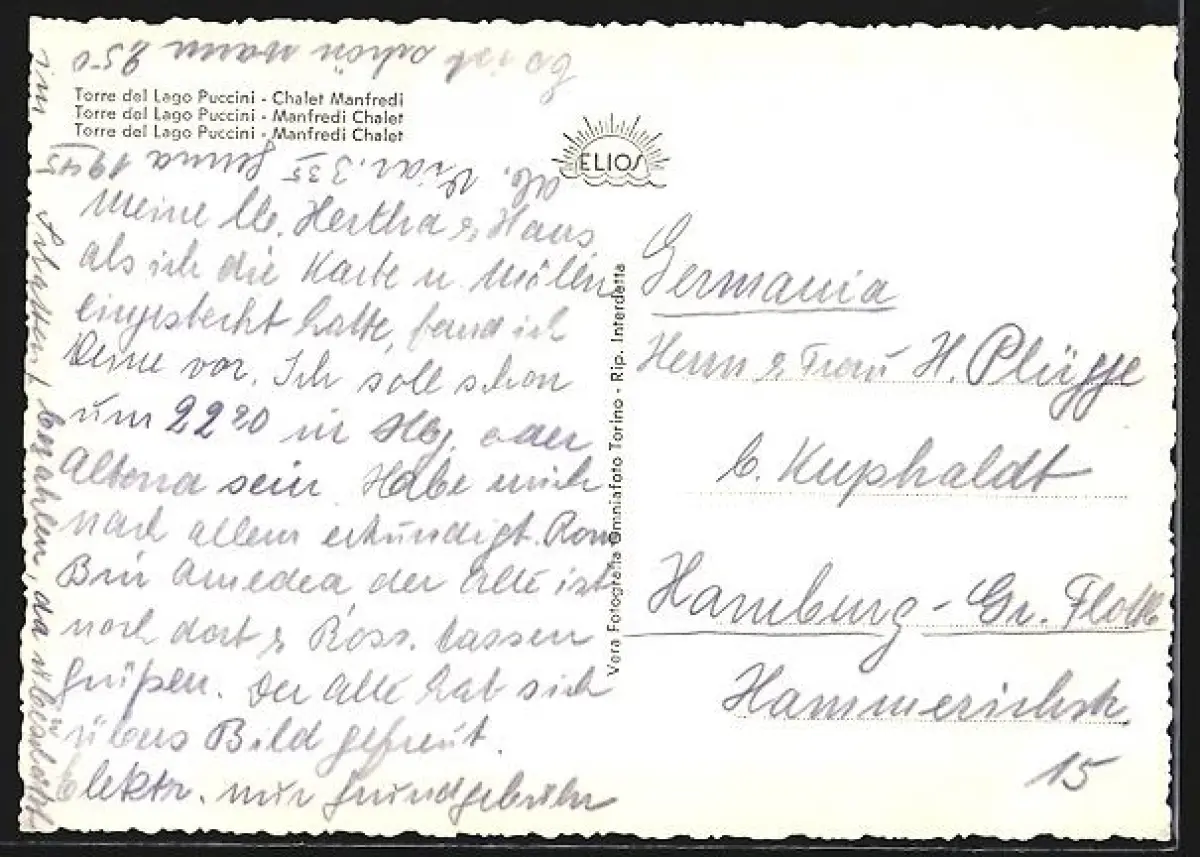 Torre del Lago Puccini - Chalet Manfredi
Torre del Lago Puccini - Manfredi Chalet
Torre del Lago Puccini - Manfredi Chalet
ELIOS
Vera Fotografia Omniafoto Torino - Rip. Interdetta
Meine lb. Hertha & Hans,
als ich die Karte n. Mölln
eingesteckt hatte, fand ich
Deine vor. Ich soll schon
um 22 20 in Hbg. oder
Altona sein. Habe mich
nach allem erkundigt. Rom
Bin Amedea der Alte ist
noch dort & Ross. lassen
grüßen. Der Alte hat sich
übers Bild gefreut.
Elektr. nur Grundgebühr
bezahlen, da
im Schatten
ab. Viar. 3 35 Genua 19 45
Es ist schön warm 25 0
Germania
Herrn & Frau H. Plügge
b. Kuphaldt
Hamburg - Gr. Flottb
Hammerichstr.
15